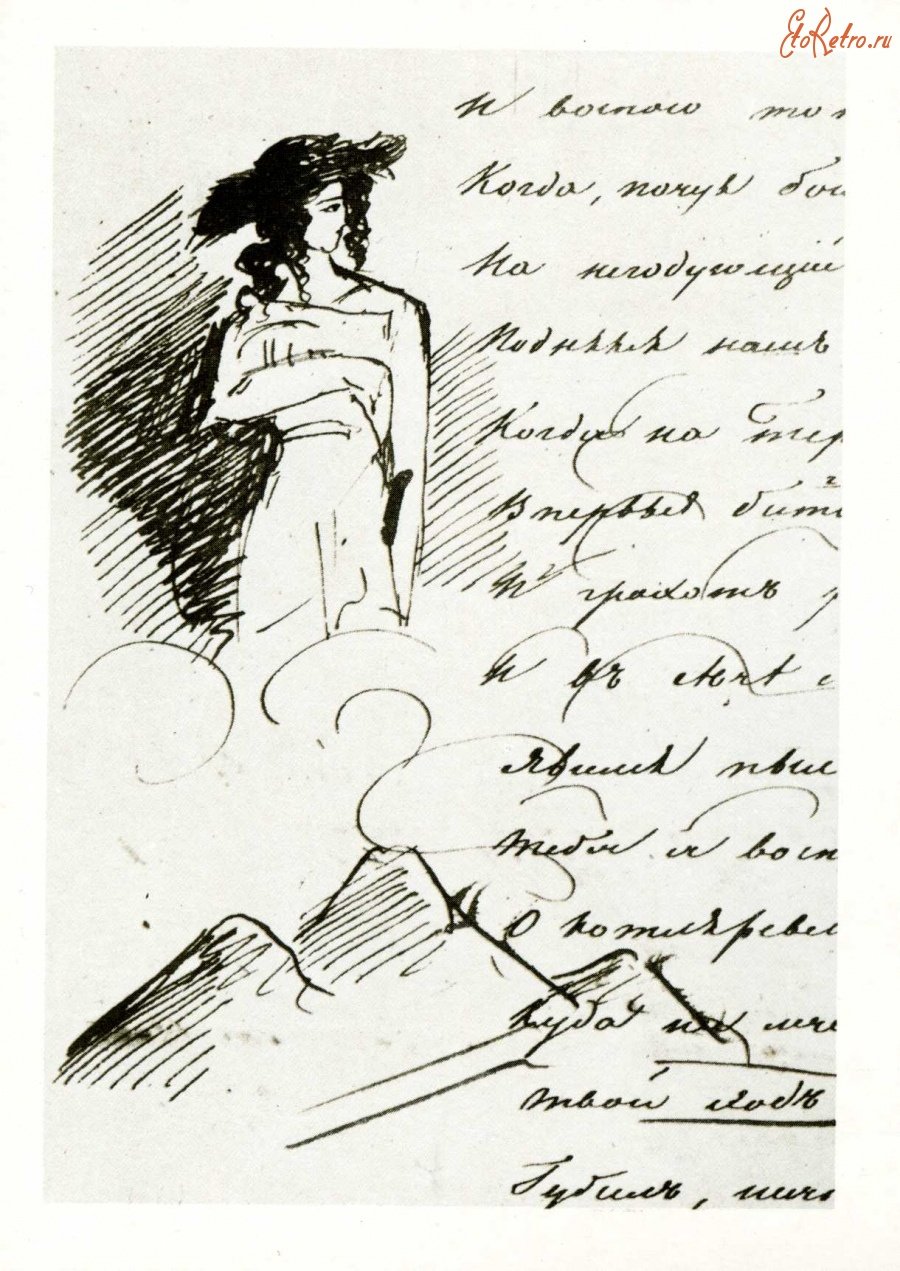 EtoRetro.ru
И воспою тот
Когда, почуя бой
На негодующій
Подъялся нашъ
Когда на Тер
Впервые битв
И грохотъ р
И въ сечѣ с
Явился пыл
Тебя я восп
О Котляревс
Куда ни мча
Твой ходъ
Губилъ, ничт